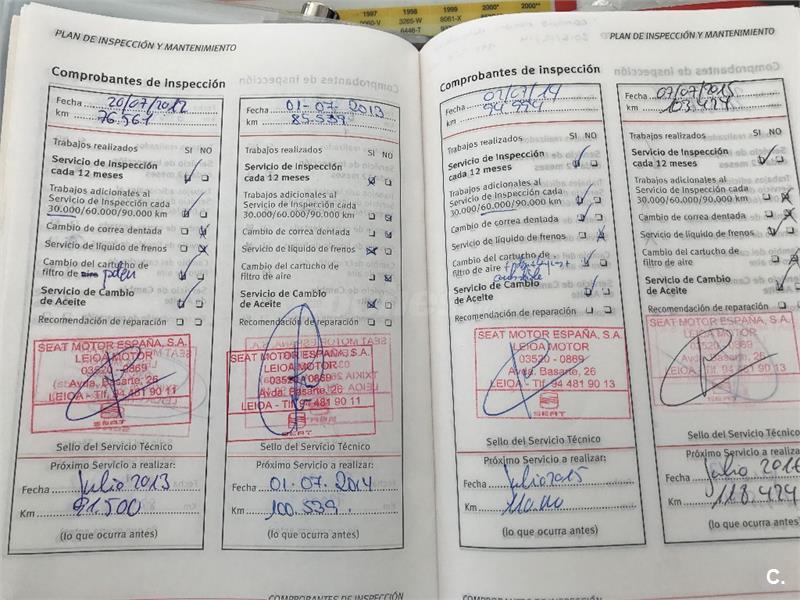 1997 1998 1999 2000* 2000**
PLAN DE INSPECCIÓN Y MANTENIMIENTO
Comprobantes de inspección
Fecha 20/07/2012
km 76.561
Trabajos realizados SI NO
Servicio de Inspección
cada 12 meses
Trabajos adicionales al
Servicio de Inspección cada
30.000/60.000/90.000 km
Cambio de correa dentada
Servicio de líquido de frenos
Cambio del cartucho de
filtro de aire polen
Servicio de Cambio
de Aceite
Recomendación de reparación
SEAT MOTOR ESPAÑA, S.A.
LEIOA MOTOR
03520 - 0869
Avda. Basarte, 26
LEIOA - Tlf. 94 481 90 11
SEAT
Sello del Servicio Técnico
Próximo Servicio a realizar:
Fecha Julio 2013
Km 91.500
(lo que ocurra antes)
Fecha 01-07-2013
km 85.539
Trabajos realizados SI NO
Servicio de Inspección
cada 12 meses
Trabajos adicionales al
Servicio de Inspección cada
30.000/60.000/90.000 km
Cambio de correa dentada
Servicio de líquido de frenos
Cambio del cartucho de
filtro de aire
Servicio de Cambio
de Aceite
Recomendación de reparación
SEAT MOTOR ESPAÑA, S.A.
LEIOA MOTOR
03520 - 0869
Avda. Basarte, 26
LEIOA - Tlf. 94 481 90 11
SEAT
Sello del Servicio Técnico
Próximo Servicio a realizar:
Fecha 01.07.2014
Km 100.539
(lo que ocurra antes)
COMPROBANTES DE INSPECCIÓN
PLAN DE INSPECCIÓN Y MANTENIMIENTO
Comprobantes de inspección
Fecha 02/07/14
km
Trabajos realizados SI NO
Servicio de Inspección
cada 12 meses
Trabajos adicionales al
Servicio de Inspección cada
30.000/60.000/90.000 km
Cambio de correa dentada
Servicio de líquido de frenos
Cambio del cartucho de
filtro de aire
Servicio de Cambio
de Aceite
Recomendación de reparación
SEAT MOTOR ESPAÑA, S.A.
LEIOA MOTOR
03520 - 0869
Avda. Basarte, 26
LEIOA - Tlf. 94 481 90 13
SEAT
Sello del Servicio Técnico
Próximo Servicio a realizar:
Fecha Julio 2015
Km
(lo que ocurra antes)
Fecha 07/07/2015
km 103.424
Trabajos realizados SI NO
Servicio de Inspección
cada 12 meses
Trabajos adicionales al
Servicio de Inspección cada
30.000/60.000/90.000 km
Cambio de correa dentada
Servicio de líquido de frenos
Cambio del cartucho de
filtro de aire
Servicio de Cambio
de Aceite
Recomendación de reparación
SEAT MOTOR ESPAÑA, S.A.
LEIOA MOTOR
03520 - 0869
Avda. Basarte, 26
LEIOA - Tlf. 94 481 90 13
Sello del Servicio Técnico
Próximo Servicio a realizar:
Fecha Julio 2016
Km 118.424
(lo que ocurra antes)
C.